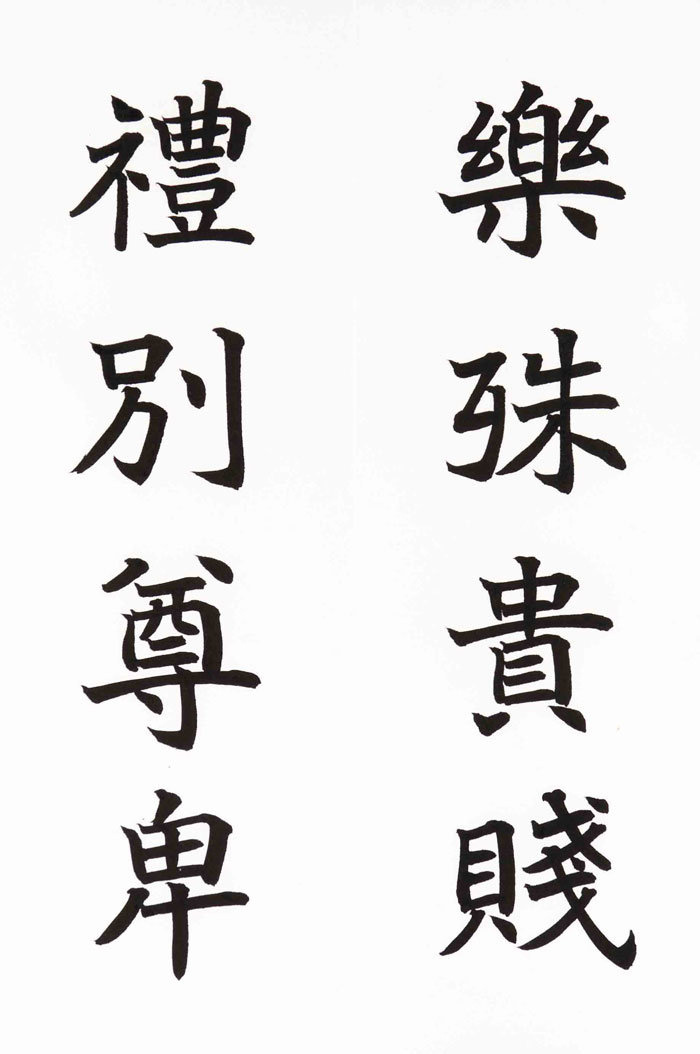 樂殊貴賤
禮別尊卑